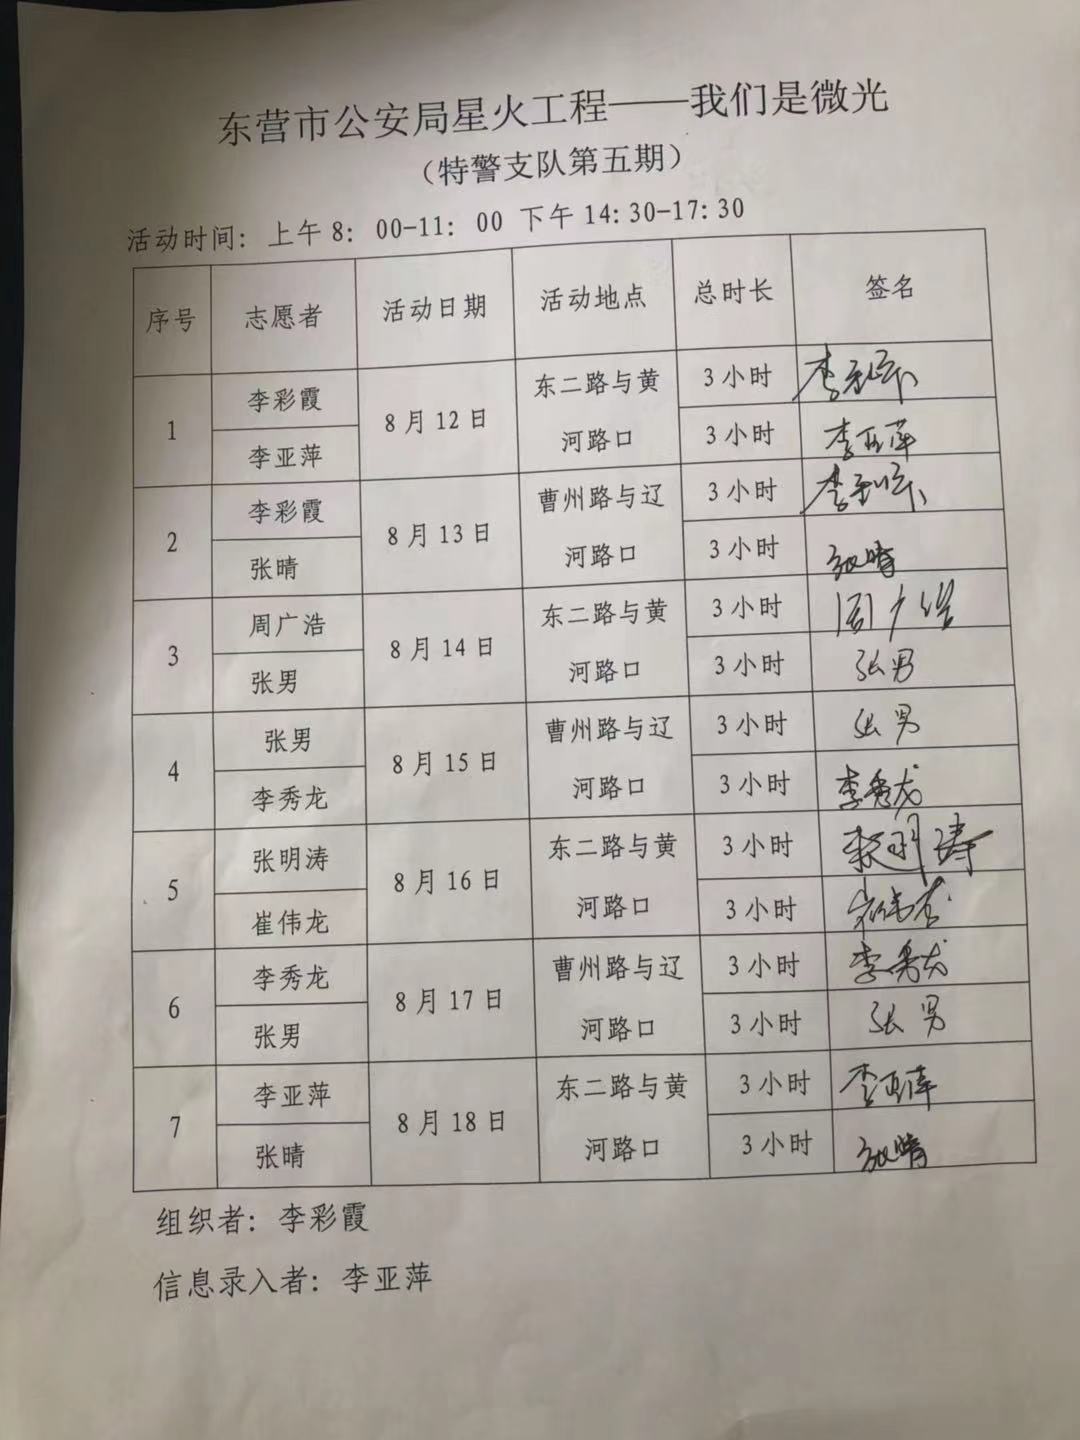 东营市公安局星火工程——我们是微光
（特警支队第五期）
活动时间：上午8：00-11：00 下午14:30-17:30
序号 志愿者 活动日期 活动地点 总时长 签名
1 李彩霞 8月12日 东二路与黄 3小时
李亚萍 河路口 3小时 李亚萍
2 李彩霞 8月13日 曹州路与辽 3小时
张晴 河路口 3小时 张晴
3 周广浩 8月14日 东二路与黄 3小时 周广浩
张男 河路口 3小时 张男
4 张男 8月15日 曹州路与辽 3小时 张男
李秀龙 河路口 3小时 李秀龙
5 张明涛 8月16日 东二路与黄 3小时
崔伟龙 河路口 3小时
6 李秀龙 8月17日 曹州路与辽 3小时 李秀龙
张男 河路口 3小时 张男
7 李亚萍 8月18日 东二路与黄 3小时 李亚萍
张晴 河路口 3小时 张晴
组织者：李彩霞
信息录入者：李亚萍